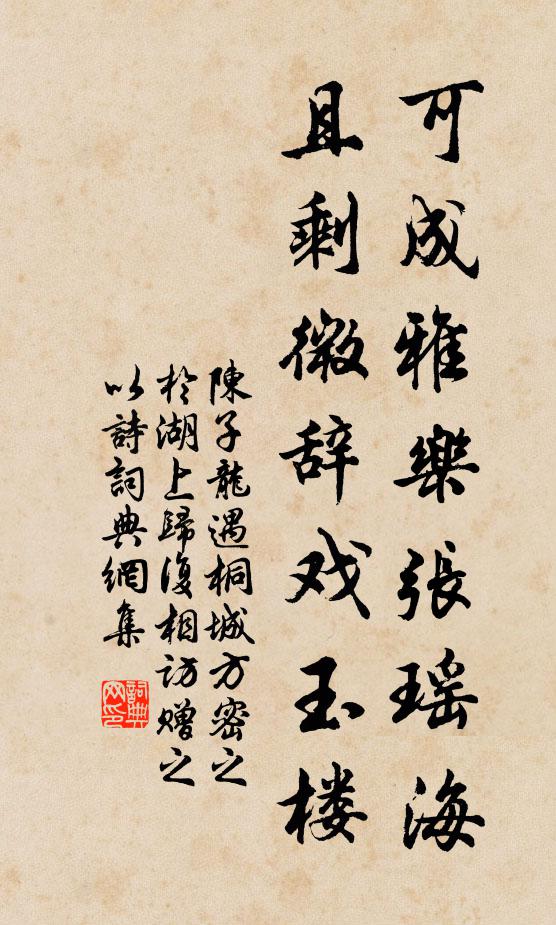 可成雅樂張瑶海
且剩微辞戏玉楼
陳子龍遇桐城方密之
於湖上歸復相访赠之
以詩詞典網集
詞典網印